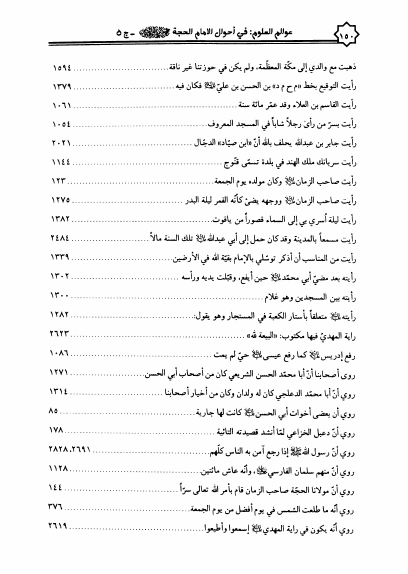 ١٥٠ عوالم العلوم: في أحوال الإمام الحجة ـ ج ٥
ذهبت مع والدي إلى مكّة المعظّمة، ولم يكن في حوزتنا غير ناقة ١٥٩٤
رأيت التوقيع بخط «م ح م د» بن الحسن بن عليّ فكان فيه ١٣٧٩
رأيت القاسم بن العلاء وقد عمّر مائة سنة ١٠٦١
رأيت بسرّ من رأى رجلاً شاباً في المسجد المعروف ١٠٥٤
رأيت جابر بن عبدالله يحلف بالله أنّ «ابن صيّاد» الدجّال ٢٠٢١
رأيت سرباتك ملك الهند في بلدة تسمّى قنّوج ١١٤٤
رأيت صاحب الزمان وكان مولده يوم الجمعة ١٢٣
رأيت صاحب الزمان ووجهه يضئ كأنّه القمر ليلة البدر ١٢٧٥
رأيت ليلة أسري بي إلى السماء قصوراً من ياقوت ١٣٨٢
رأيت مسمعاً بالمدينة وقد كان حمل إلى أبي عبدالله تلك السنة مالاً ٢٤٨٤
رأيت من المناسب أن أذكر توسّلي بالإمام بقيّة الله في الأرضين ١٣٣٩
رأيته بعد مضيّ أبي محمّد حين أيفع، وقبّلت يديه ورأسه ١٣٠٢
رأيته بين المسجدين وهو غلام ١٣٠٠
رأيته متعلقاً بأستار الكعبة في المستجار وهو يقول: ١٢٨٢
راية المهديّ فيها مكتوب: «البيعة لله» ٢٦٢٣
رفع إدريس كما رفع عيسى حيّ لم يمت ١٠٨٦
روى أصحابنا أنّ أبا محمّد الحسن الشريعي كان من أصحاب أبي الحسن ١٢٧١
روي أنّ أبا محمّد الدعلجي كان له ولدان وكان من أخيار أصحابنا ١٣١٤
روي أن بعض أخوات أبي الحسن كانت لها جارية ٨٥
روي أنّ دعبل الخزاعي لمّا أنشد قصيدته التائية ١٧٨
روي أنّ رسول الله إذا رجع آمن به الناس كلّهم ٢٦٩١، ٢٨٢٨
روي أنّ منهم سلمان الفارسي، وأنّه عاش مائتين ١١٢٨
روي أنّ مولانا الحجّة صاحب الزمان قام بأمر الله تعالى سرّاً ١٤٤
روي أنّه ما طلعت الشمس في يوم أفضل من يوم الجمعة ٣٧٦
روي أنّه يكون في راية المهديّ إسمعوا وأطيعوا ٢٦١٩